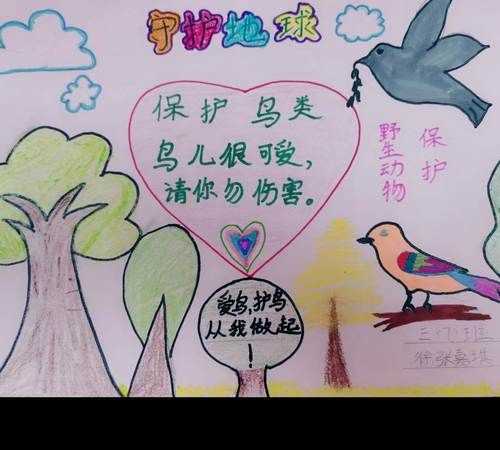 守护地球
保护鸟类
鸟儿很可爱,
请你勿伤害。
保护
野生动物
爱鸟,护鸟
从我做起
!